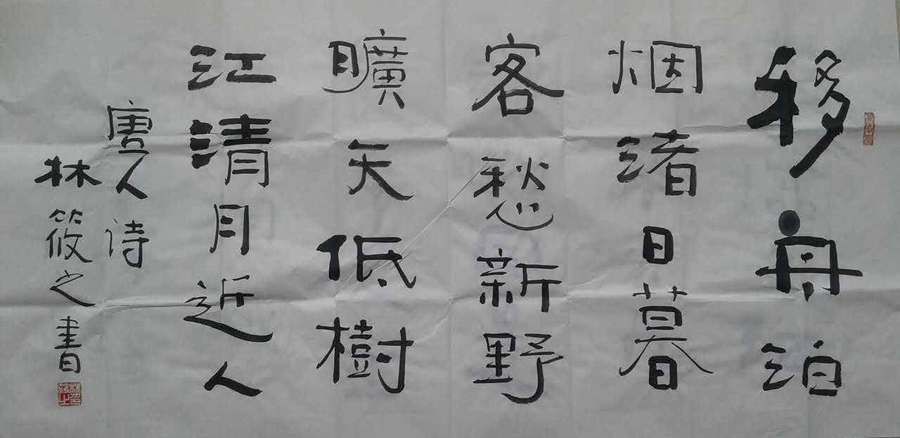 移舟泊
烟渚日暮
客愁新野
曠天低樹
江清月近人
唐人诗
林筱之書